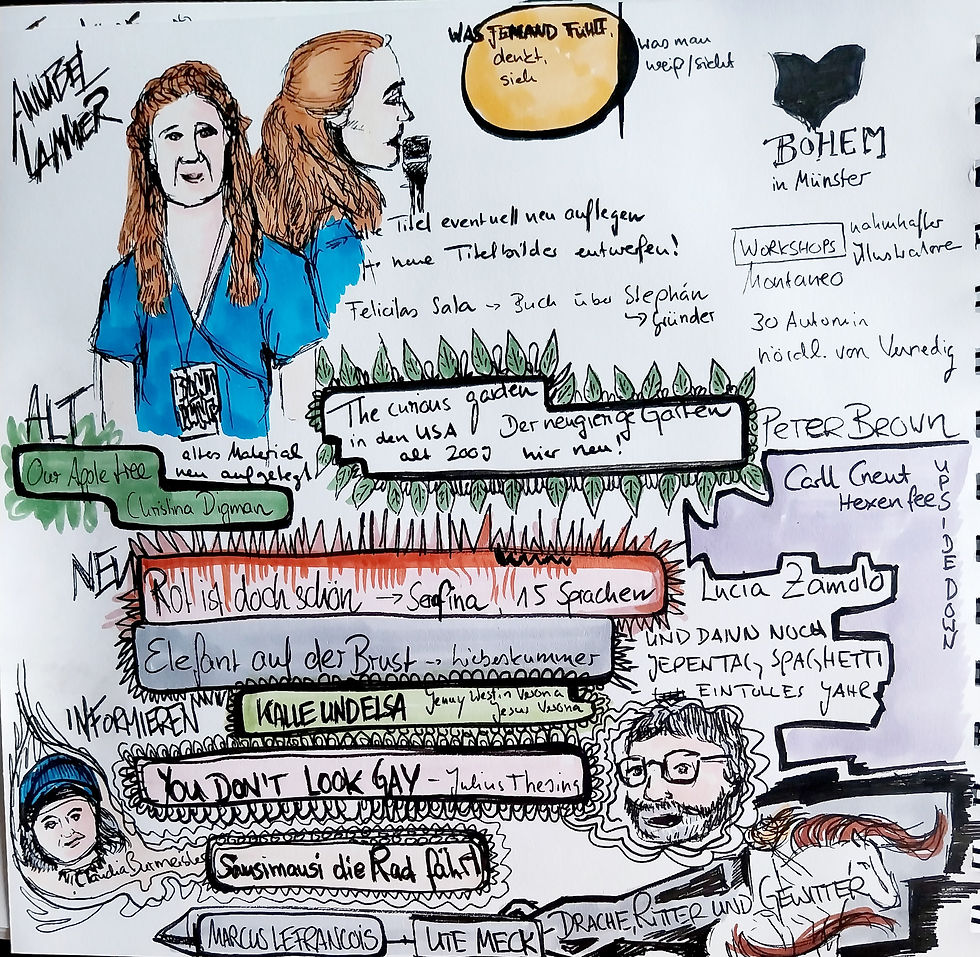 ANNABEL
LAMMER
WAS JEMAND FÜHLT,
denkt,
sieh
was man
weiß/sieht
BOHEM
in Münster
Titel eventuell neu auflegen
neue Titelbilder entwerfen!
Felicitas Sala → Buch über Stephán
→ gründer
WORKSHOPS
nahmhafter
Illustratore
Montaneo
30 Automin
nördl. von Venedig
ALT
Our Apple tree
Christina Digman
altes Material
neu aufgelegt
The curious garden
in den USA
alt 2009
Der neugierige Garten
hier neu!
PETER BROWN
Carll Cneut
Hexenfee
UPSIDE DOWN
NEU
Rot ist doch schön → Serafina, 15 Sprachen
Lucia Zamolo
Elefant auf der Brust → Liebeskummer
UND DANN NOCH
JEDENTAG SPAGHETTI
EIN TOLLES JAHR
INFORMIEREN
KALLE UND ELSA
Jenny Westin Verona
Jesus Verona
YOU DON'T LOOK GAY - Julius Thesing
Claudia Burmeister
Sausimausi die Rad fährt
MARCUS LEFRANCOIS
UTE MECK
DRACHE, RITTER UND GEWITTER